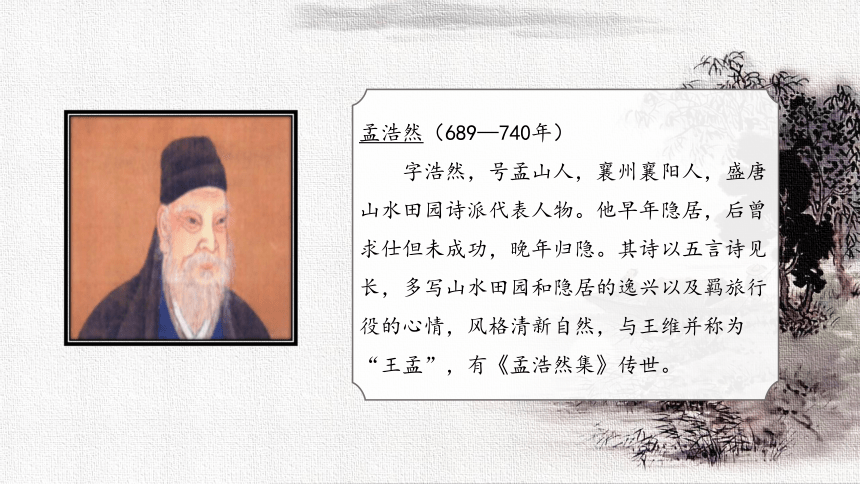 孟浩然（689—740年）
字浩然，号孟山人，襄州襄阳人，盛唐
山水田园诗派代表人物。他早年隐居，后曾
求仕但未成功，晚年归隐。其诗以五言诗见
长，多写山水田园和隐居的逸兴以及羁旅行
役的心情，风格清新自然，与王维并称为
“王孟”，有《孟浩然集》传世。